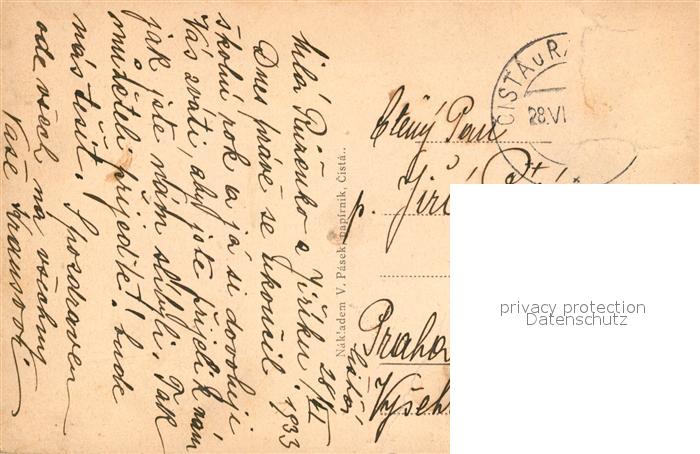 Čistá 28/VI 1933
Milá Růženko a Jiříku!
Dnes právě se ukončil
školní rok a já si dovoluji
Vás zváti, aby jste přijeli k nám
jak jste nám slíbili. Tak
můžeteli přijeďte! bude
nás těšit. S pozdravem
ode všech na všechny
Vaše Krausovi.
Nákladem V. Pásek, papírník, Čistá..
ČISTÁ u RA
28.VI
Ctěný Pan
p. Jiří
Praha
Vyšeh
privacy protection
Datenschutz